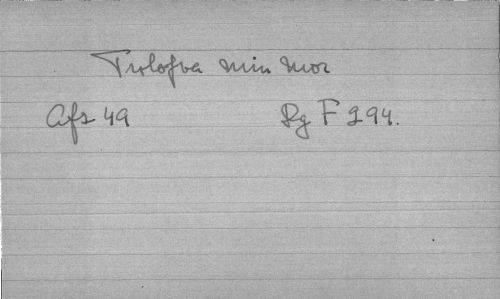 Trolofva min mor
Afs 49 Rg F 294.